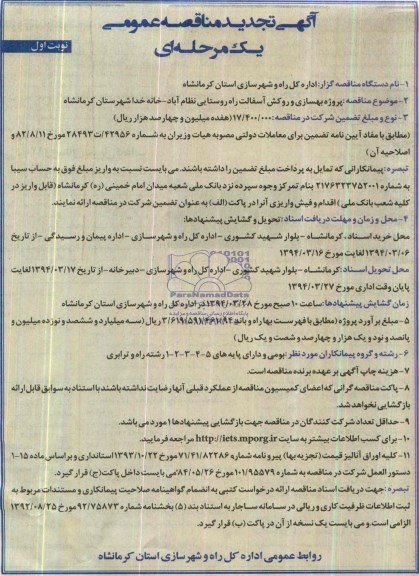 آگهی تجدید مناقصه عمومی
یک مرحله‌ای
نوبت اول
۱-نام دستگاه مناقصه گزار: اداره کل راه و شهرسازی استان کرمانشاه
۲-موضوع مناقصه: پروژه بهسازی و روکش آسفالت راه روستایی نظام آباد-خانه خدا شهرستان کرمانشاه
۳- نوع و مبلغ تضمین شرکت در مناقصه: ۱۷/۴۰۰/۰۰۰ (هفده میلیون و چهارصد هزار ریال)
(مطابق با مفاد آیین نامه تضمین برای معاملات دولتی مصوبه هیات وزیران به شماره ۴۲۹۵۶/ت۲۸۴۹۳ مورخ ۸۲/۸/۱۱ و
اصلاحیه آن)
تبصره: پیمانکارانی که تمایل به پرداخت مبلغ تضمین را داشته باشند، می بایست نسبت به واریز مبلغ فوق به حساب سیبا
به شماره ۲۱۷۶۳۲۳۷۵۲۰۰۱ بنام تمرکز وجوه سپرده نزد بانک ملی شعبه میدان امام خمینی (ره) کرمانشاه (قابل واریز در
کلیه شعب بانک ملی) اقدام و فیش واریزی آنرا در پاکت (الف) به عنوان تضمین شرکت در مناقصه ارائه نمایند.
۴- محل و زمان و مهلت دریافت اسناد: تحویل و گشایش پیشنهادها:
محل خرید اسناد، کرمانشاه - بلوار شهید کشوری - اداره کل راه و شهرسازی - اداره پیمان و رسیدگی - از تاریخ
۱۳۹۴/۰۳/۰۶ لغایت مورخ ۱۳۹۴/۰۳/۱۶
محل تحویل اسناد: کرمانشاه - بلوار شهید کشوری - اداره کل راه و شهرسازی - دبیرخانه - از تاریخ ۱۳۹۴/۰۳/۱۷ لغایت
پایان وقت اداری مورخ ۱۳۹۴/۰۳/۲۷
زمان گشایش پیشنهادها: ساعت ۱۰ صبح مورخ ۱۳۹۴/۰۳/۲۸ در اداره کل راه و شهرسازی استان کرمانشاه
۵- مبلغ برآورد پروژه (مطابق با فهرست بها راه و باند ریال (سه میلیارد و ششصد و نوزده میلیون و
پانصد و نود و یک هزار و چهارصد و شصت و یک ریال)
۶- رشته و گروه پیمانکاران مورد نظر: بومی و دارای پایه های ۵-۴-۳-۲-۱ رشته راه و ترابری
۷- هزینه چاپ آگهی بر عهده برنده مناقصه است.
۸- پاکت مناقصه گرانی که اعضای کمیسیون مناقصه از عملکرد قبلی آنها رضایت نداشته باشند با استناد به سوابق قابل ارائه
بازگشایی نخواهد شد.
۹- حداقل تعداد شرکت کنندگان در مناقصه جهت بازگشایی پیشنهادها ۱ مورد می باشد.
۱۰- برای کسب اطلاعات بیشتر به سایت http://iets.mporg.ir مراجعه فرمایید.
۱۱- کلیه اوراق آنالیز قیمت (تجزیه بها) پیرو نامه شماره ۷۱/۴۱/۸۲۲۸۶ مورخ ۱۳۹۳/۱۰/۲۲ استانداری و بر اساس ماده ۱۵-۱
دستور العمل شرکت در مناقصه به شماره ۱۰۱/۹۵۵۷۹ مورخ ۸۴/۰۵/۲۶ می بایست داخل پاکت (ج) قرار گیرد.
تبصره: جهت دریافت اسناد مناقصه ارائه درخواست کتبی به انضمام گواهینامه صلاحیت پیمانکاری و مستندات مربوط به
ثبت اطلاعات ظرفیت کاری و ریالی در سامانه ساجار به استناد بند (۵) بخشنامه شماره ۹۲/۷۵۸۷۳ مورخ ۱۳۹۲/۰۸/۲۵
الزامی است، و می بایست یک نسخه از آن در پاکت (ب) قرار گیرد.
روابط عمومی اداره کل راه و شهرسازی استان کرمانشاه
ParsNamadData